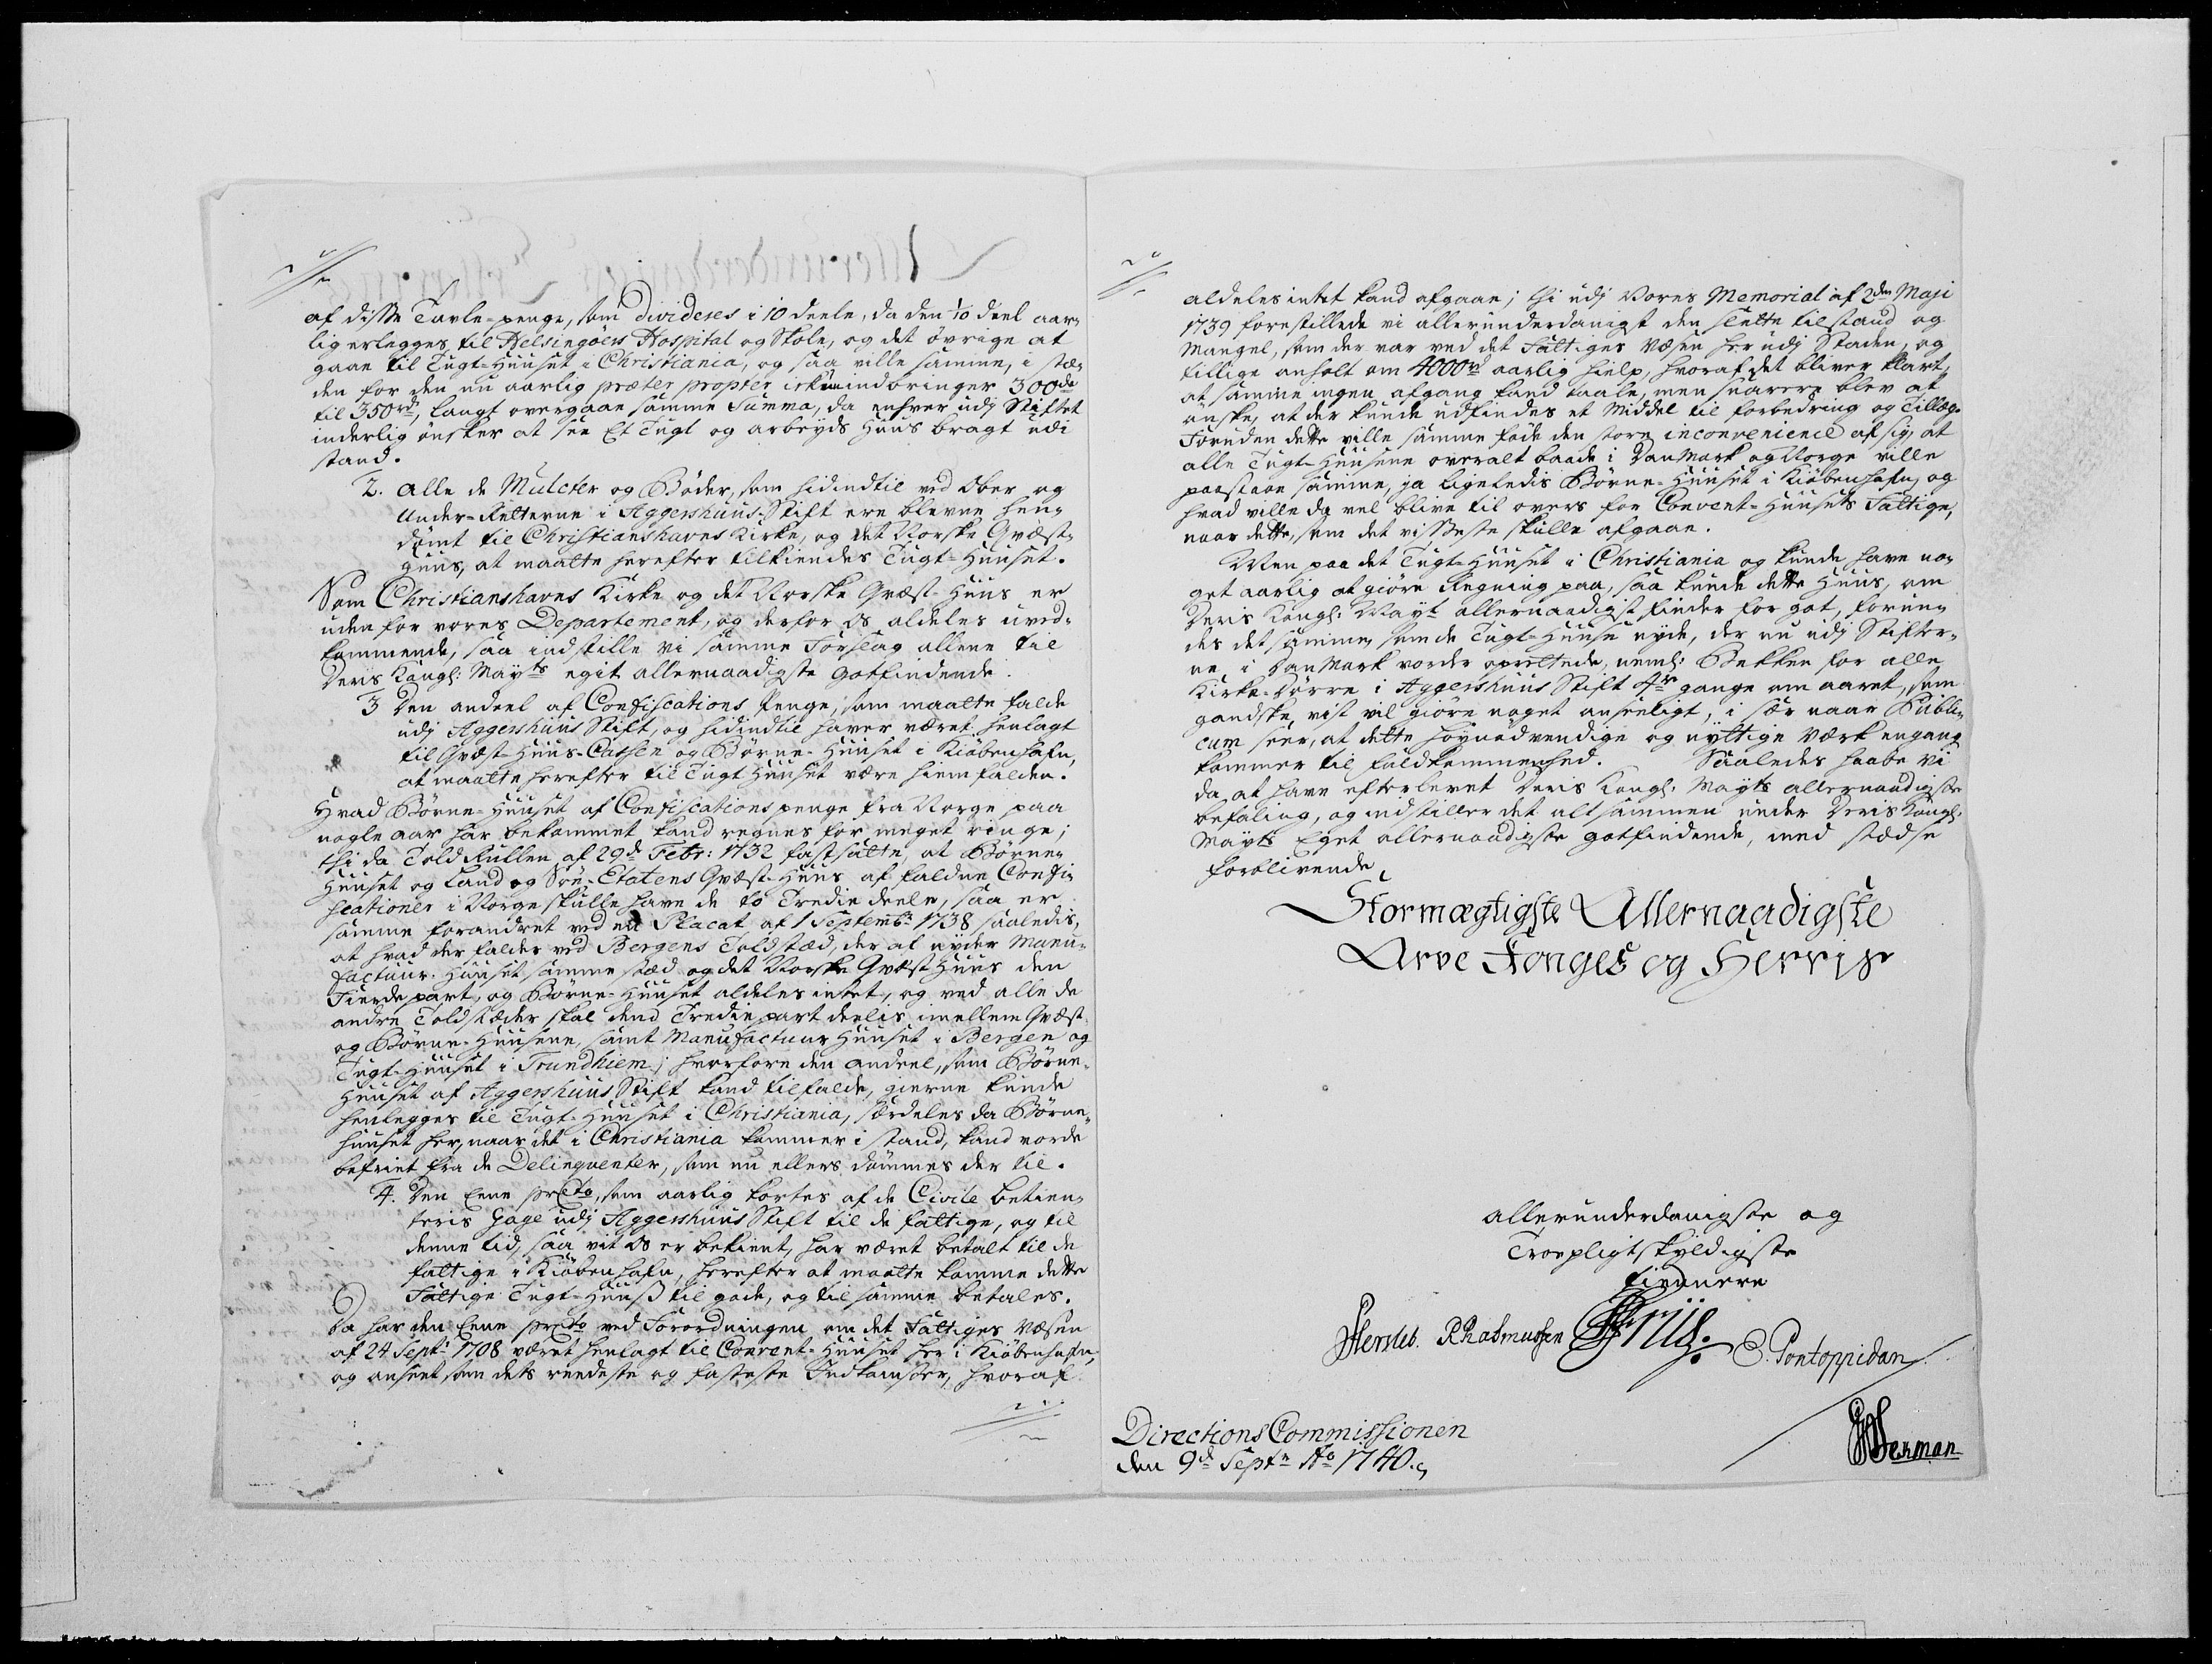 af disse Tavle-penge, som divideres i 10 deele, da den 1/10 deel aar-
lig erlegges til Helsingöers Hospital og Skole, og det övrige at
gaae til Tugt-Huuset i Christiania, og saa ville samme, i stæ-
den for den nu aarlig præter propter indbringer 300de
til 350rd, langt overgaae samme Summa, da enhver udj Stiftet
inderlig önsker at see Et Tugt og arbeyds Huus bragt udi
stand.
2. Alle de Mulcter og Böder, som hidindtil ved Ober og
Under-Retterne i Aggershuus-Stift ere blevne hen-
dömt til Christianshavns Kirke, og det Norske Qvæst-
huus, at maatte herefter tilkiendes Tugt-Huuset.
Som Christianshavns Kirke og det Norske Qvæst-Huus er
uden for vores Departement, og derfor os aldeles uved-
kommende, saa indstille vi samme Forslag allene til
Deris Kongl: Mayts egit allernaadigste gotfindende.
3 Den andeel af Confiscations Penge, som maatte falde
udj Aggershuus Stift, og hidindtil haver været henlagt
til Qvæst-Huus-Cassen og Börne-Huuset i Kiöbenhafn,
at maatte herefter til Tugt Huuset være hiemfalden.
Hvad Börne-Huuset af Confiscations penge fra Norge paa
nogle aar har bekommet kand regnes for meget ringe;
thi da Told Rullen af 29d Febr: 1732 fastsatte, at Börne-
Huuset og Land og Söe-Etatens Qvæst-Huus af faldne Confi-
scationer i Norge skulle have de to Tredie deele, saa er
samme forandret ved en Placat af 1 Septembr 1738 saaledis,
at hvad der falder ved Bergens Toldstæd, der af nyder Manu-
factuur-Huuset samme stæd og det Norske Qvæst Huus den
Fierde part, og Börne-Huuset aldeles intet, og ved alle de
andre Toldstæder skal dend Tredie part deelis imellem Qvæst-
og Börne-Huusene, samt Manufactuur Huuset i Bergen og
Tugt-Huuset i Trundhiem; hvorfore den andeel, som Börne-
Huuset af Aggershuus Stift kand tilfalde, gierne kunde
henlegges til Tugt-Huuset i Christiania, særdeles da Börne-
huuset her, naar det i Christiania kommer i stand, kand vorde
befriet fra de Delinqventer, som nu ellers dömmes der til.
4. Den Eene prCto, som aarlig kortes af de Civile betien-
teris Gage udj Aggershuus Stift til de fattige, og til
denne tid, saa vit os er bekient, har været betalt til de
fattige i Kiöbenhafn, herefter at maatte komme dette
Fattige Tugt-Huuß til gode, og til samme betales.
Da har den Eene prCto ved Forordningen om det Fattiges Væsen
af 24 Septr 1708 været henlagt til Convent-Huuset her i Kiöbenhafn,
og anseet som dets reedeste og fasteste Indkomster, hvoraf
aldeles intet kand afgaae; thi udj Vores Memorial af 2den Maji
1739 forestillede vi allerunderdanigst den slette tilstand og
Mangel, som der var ved det Fattiges Væsen her udj Staden, og
tillige anholt om 4000rd aarlig hielp, hvoraf det bliver klart,
at samme ingen afgang kand taale, men snarere blev at
önske, at der kunde udfindes et Middel til forbedring og Tillæg.
Foruden dette ville samme föde den store inconvenience af sig, at
alle Tugt-Huusene overalt baade i Danmark og Norge ville
paastaae samme, ja ligeledis Börne-Huuset i Kiöbenhafn, og
hvad ville da vel blive til overs for Convent-Huusets Fattige,
naar dette, som det visseste skulle afgaae.
Men paa det Tugt-Huuset i Christiania og kunde have no-
get aarlig at giöre Regning paa, saa kunde dette Huus, om
Deris Kongl: Mayt allernaadigst finder for got, forun-
des det samme, som de Tugt-Huuse nyde, der nu udj Stifter-
ne i Danmark vorder oprettede, neml: Bekken for alle
Kirke-Dörre i Aggershuus Stift 4re gange om aaret, som
gandske vist vil giöre noget anseeligt, i sær naar Publi-
cum seer, at dette höynödvendige og nyttige Værk engang
kommer til fuldkommenhed. Saaledes haabe vi
da at have efterlevet Deris Kongl. Mayts allernaadigste
befaling, og indstiller det altsammen under Deris Kongl.
Mayts Eget allernaadigste gotfindende, med stædse
forblivende
Stormægtigste Allernaadigste
Arve Konges og Herris
allerunderdanigste og
Troepligtskyldigste
tienere
Hersleb. R Rasmussen E. Pontoppidan
Herman
Directions Commissionen
den 9d Septr Ao 1740.